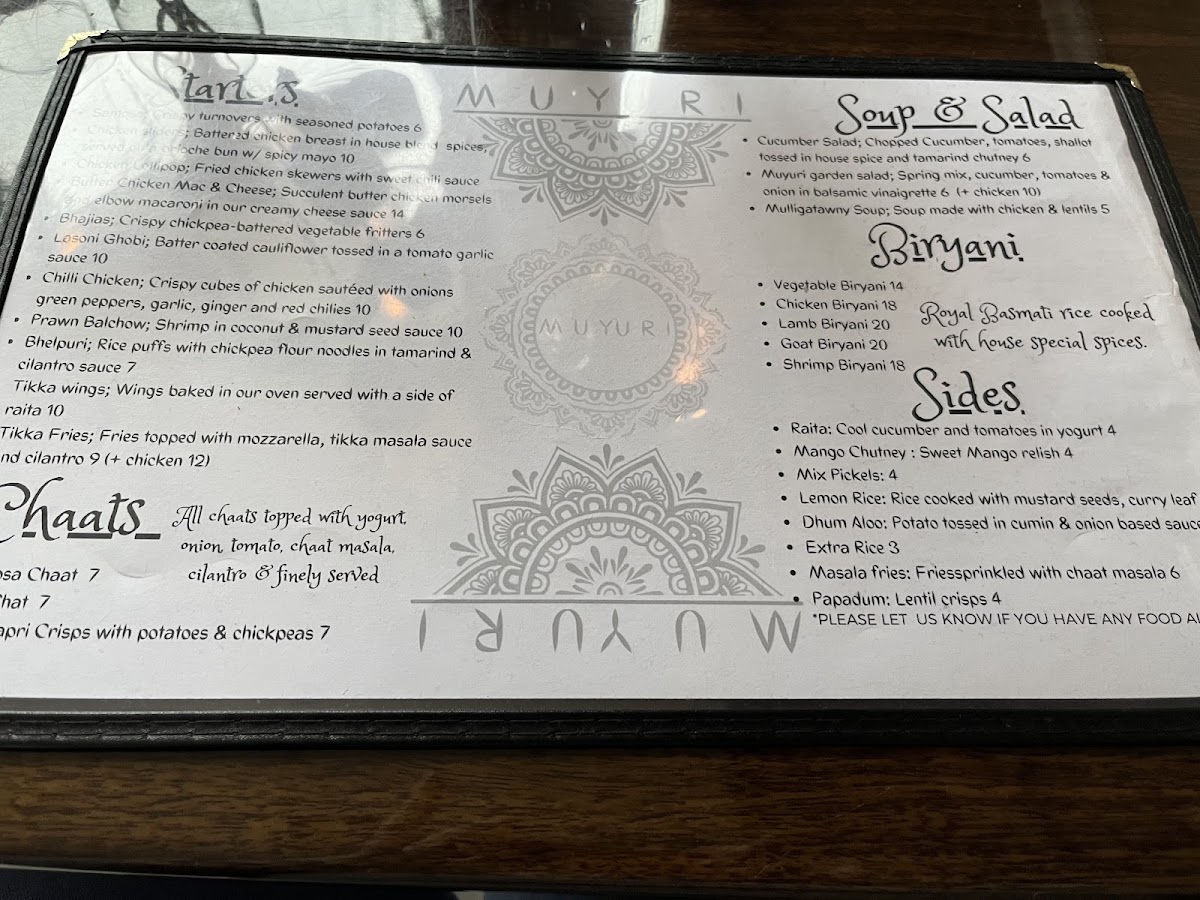 Starters
Samosa; Crispy turnovers with seasoned potatoes 6
Chicken sliders; Battered chicken breast in house blend spices,
served on brioche bun w/ spicy mayo 10
Chicken Lollipop; Fried chicken skewers with sweet chili sauce
Butter Chicken Mac & Cheese; Succulent butter chicken morsels
elbow macaroni in our creamy cheese sauce 14
Bhajias; Crispy chickpea-battered vegetable fritters 6
Lasoni Ghobi; Batter coated cauliflower tossed in a tomato garlic
sauce 10
Chilli Chicken; Crispy cubes of chicken sautéed with onions
green peppers, garlic, ginger and red chilies 10
Prawn Balchow; Shrimp in coconut & mustard seed sauce 10
Bhelpuri; Rice puffs with chickpea flour noodles in tamarind &
cilantro sauce 7
Tikka wings; Wings baked in our oven served with a side of
raita 10
Tikka Fries; Fries topped with mozzarella, tikka masala sauce
nd cilantro 9 (+ chicken 12)
Chaats
All chaats topped with yogurt,
onion, tomato, chaat masala,
cilantro & finely served
osa Chaat 7
hat 7
apri Crisps with potatoes & chickpeas 7
MUY RI
MUYURI
MUYURI
Soup & Salad
Cucumber Salad; Chopped Cucumber, tomatoes, shallot
tossed in house spice and tamarind chutney 6
Muyuri garden salad; Spring mix, cucumber, tomatoes &
onion in balsamic vinaigrette 6 (+ chicken 10)
Mulligatawny Soup; Soup made with chicken & lentils 5
Biryani
Vegetable Biryani 14
Chicken Biryani 18
Lamb Biryani 20
Goat Biryani 20
Shrimp Biryani 18
Royal Basmati rice cooked
with house special spices.
Sides
Raita: Cool cucumber and tomatoes in yogurt 4
Mango Chutney : Sweet Mango relish 4
Mix Pickels: 4
Lemon Rice: Rice cooked with mustard seeds, curry leaf
Dhum Aloo: Potato tossed in cumin & onion based sauce
Extra Rice 3
Masala fries: Friessprinkled with chaat masala 6
Papadum: Lentil crisps 4
*PLEASE LET US KNOW IF YOU HAVE ANY FOOD AL